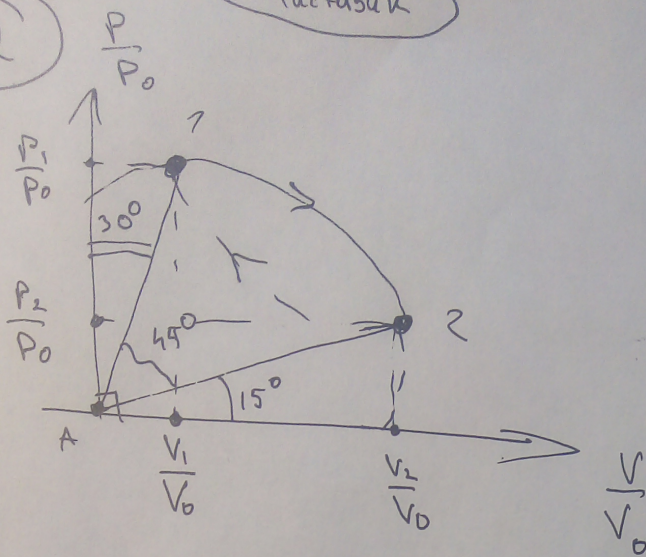 P/P₀
1
P₁/P₀
30°
P₂/P₀
45°
2
15°
A
V₁/V₀
V₂/V₀
V/V₀